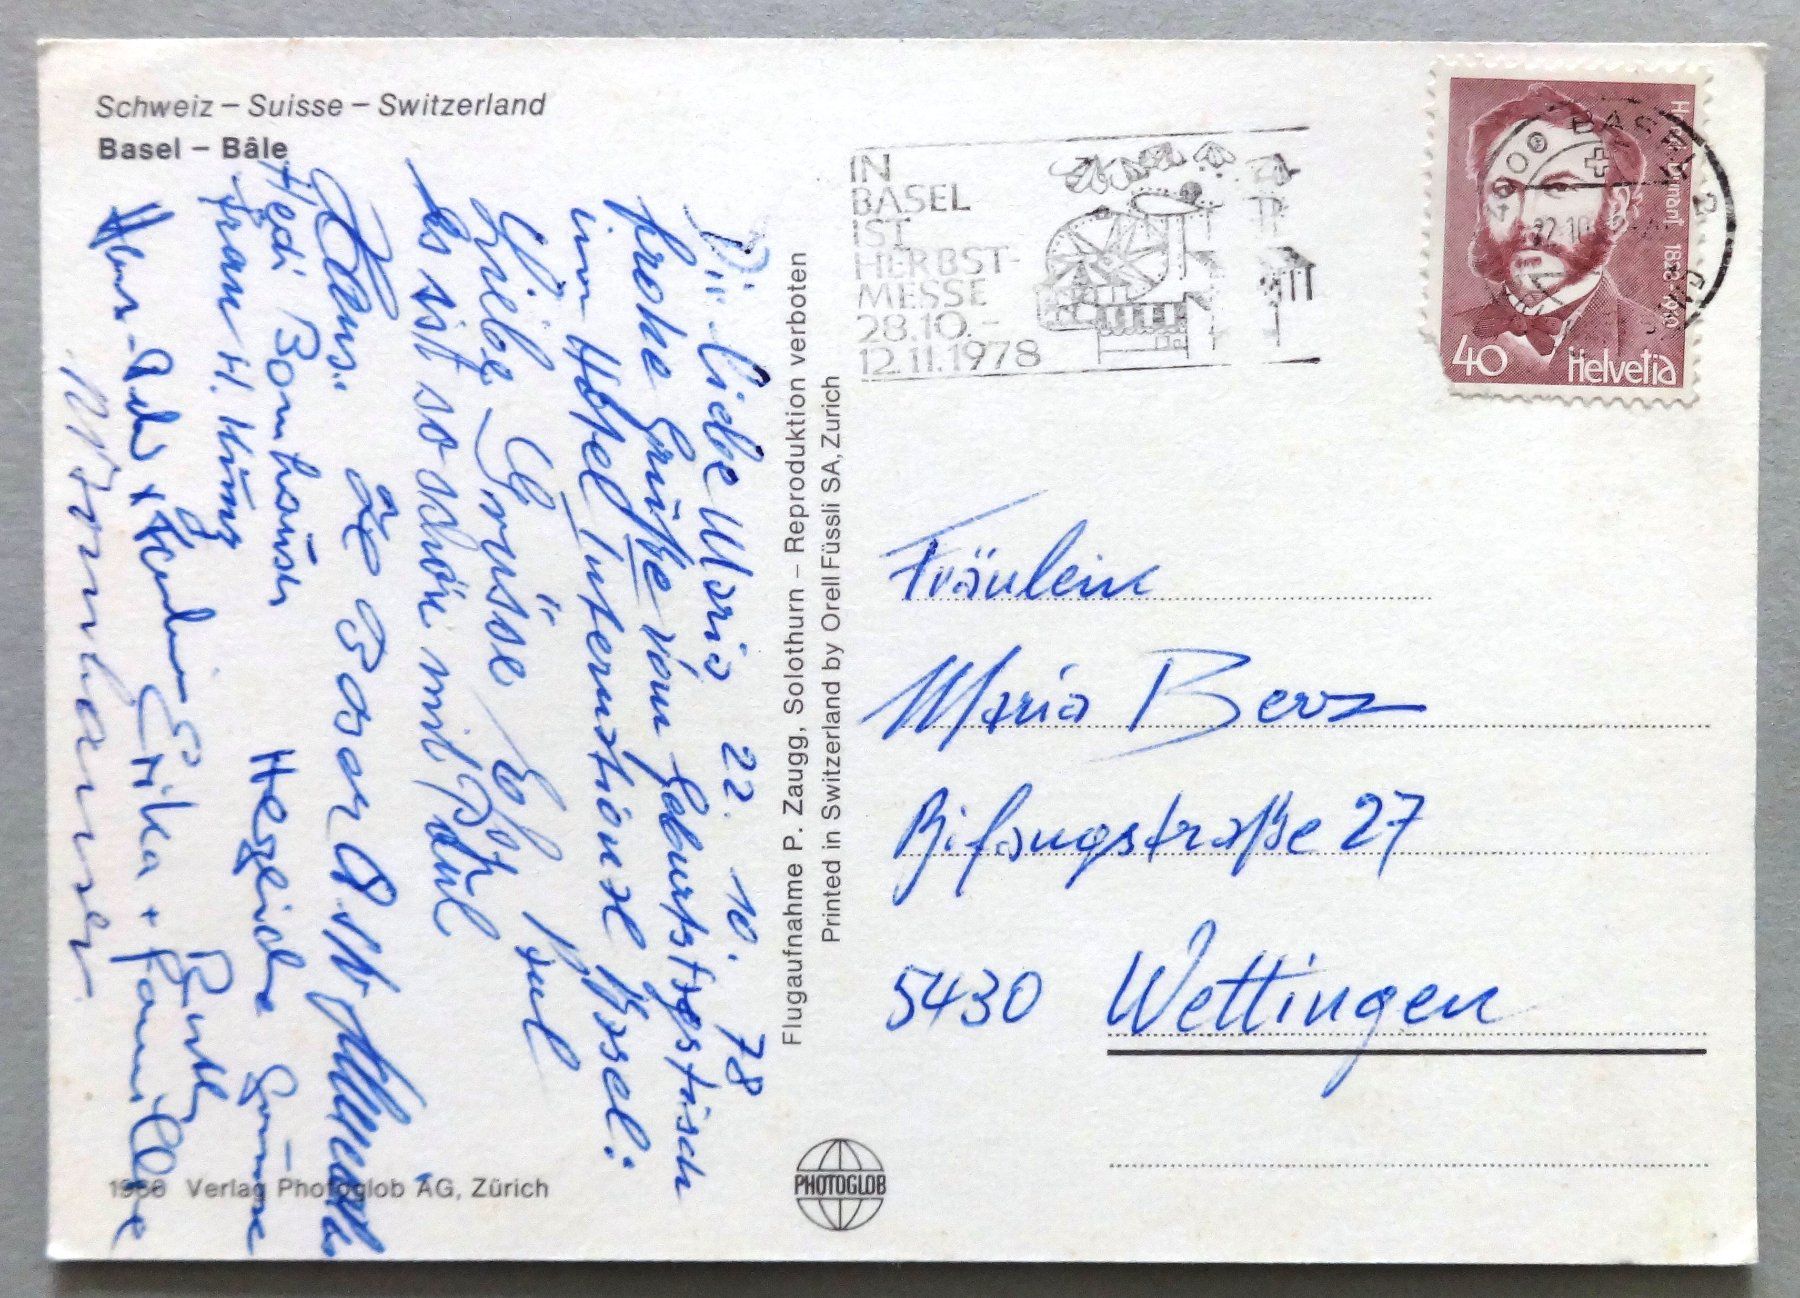 Schweiz – Suisse – Switzerland
Basel – Bâle
Dir liebe Maria 22. 10. 78
frohe Grüße vom Geburtstagstisch
im Hotel International Basel:
Liebe Grüsse
Es ist so schön mit Paul
Hans.
Hedi Bornhauser Herzliche Grüsse
Frau H. Küng
Erika + Familie
Bornhauser
Flugaufnahme P. Zaugg, Solothurn – Reproduktion verboten
Printed in Switzerland by Orell Füssli SA, Zurich
IN
BASEL
IST
HERBST-
MESSE
28.10.–
12.11.1978
4000 BASEL 2
22.10.
Dunant 1828
40 Helvetia
Fräulein
Maria Berz
Bifangstraße 27
5430 Wettingen
Verlag Photoglob AG, Zürich
PHOTOGLOB